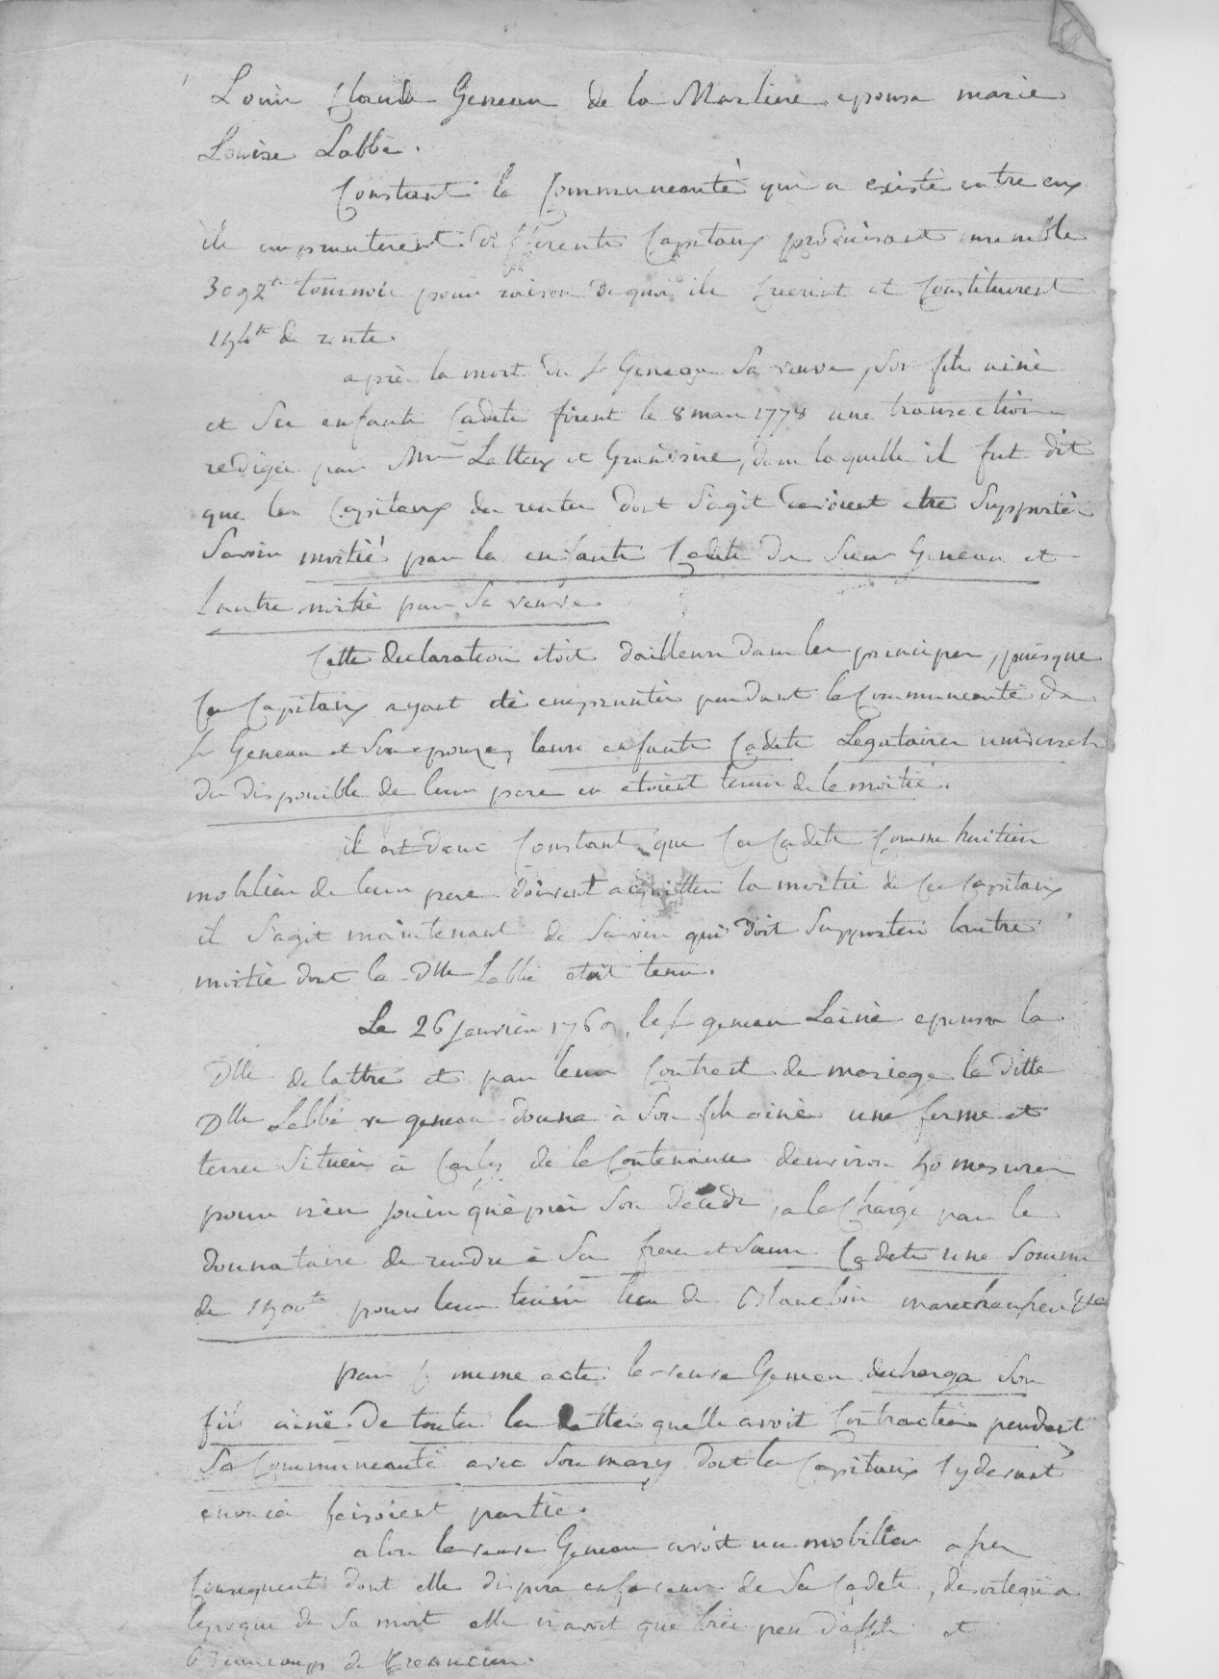 Louis Claude Geneau de la Marliere epousa marie
Louise Labbé.
Constant la Communeauté qui a existé entre eux
ils emprunterent differents Capitaux produisant ensemble
3092tt tournois pour raison de quoi ils creerent et Constituerent
de rente.
aprés la mort du Sr Geneau Sa veuve, Son fils ainé
et Ses enfants Cadets firent le 8 mars 1778 une transaction
redigée par Mrs Latteux et dans laquelle il fut dit
que les Capitaux des rentes dont S'agit devoient etre Supportés
Savoir moitié par les enfants Cadets du Sieur Geneau et
lautre moitié par Sa veuve.
Cette declaration etoit dailleurs dans les principes, puisque
Ces Capitaux ayant eté empruntés pendant la Communeauté du
Sr Geneau et Son epouze, leurs enfants Cadets Legataires universels
du disponible de leur pere en etoient tenus de la moitié.
il est donc Constant que Ces Cadets Comme heritiers
mobiliers de leur pere doivent acquitter la moitié de Ces Capitaux
il S'agit maintenant de Savoir qui doit Supporter lautre
moitié dont la Dlle Labbé etoit tenue.
Le 26 Janvier le Sr geneau Lainé epousa la
Dlle delattre et par leur Contract de mariage la ditte
Dlle Labbé ve geneau donna à Son fils ainé une ferme et
terres Situées à de la Contenance denviron mesures
pour n'en jouir qu'aprés Son decéde, a la Charge par le
donnataire de rendre à Ses freres et Soeurs Cadets une Somme
de pour leur tenir lieu de
par le meme acte la veuve Geneau dechargea Son
fils ainé de toutes les dettes quelle avoit Contractées pendant
Sa Communeauté avec Son mary dont les Capitaux Cydevant
enoncés faisoient partie.
alors la veuve Geneau avoit un mobilier assez
Consequent dont elle disposa en faveur de Ses Cadets, desortequ'a
lepoque de Sa mort elle n'avoit que très peu d'effets et
Beaucoups de Creanciers.